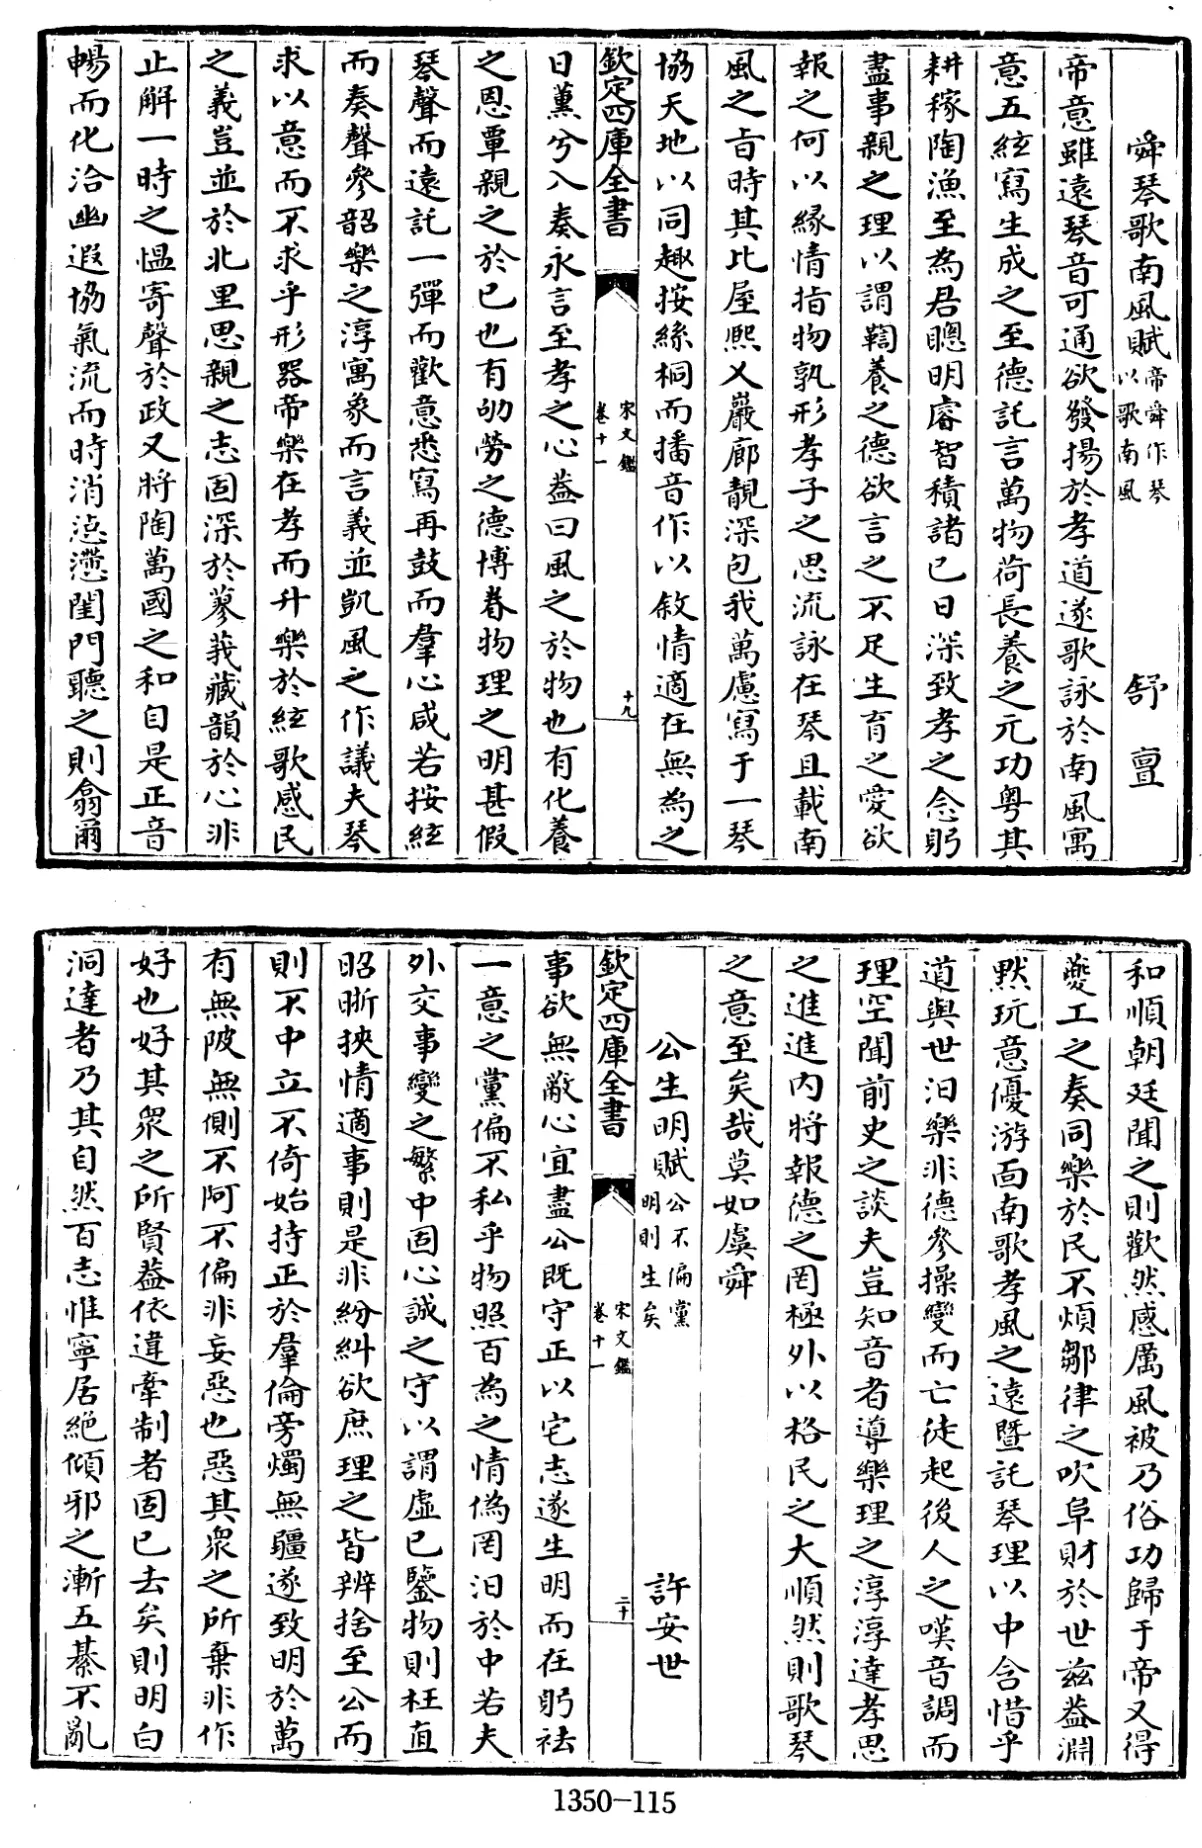 舜琴歌南風賦帝舜作琴以歌南風 舒亶
帝意雖遠琴音可通欲發揚於孝道遂歌詠於南風寓
意五絃寫生成之至德託言萬物荷長養之元功粤其
耕稼陶漁至為君聰明睿智積諸已日深致孝之念躬
盡事親之理以謂鞠養之德欲言之不足生育之愛欲
報之何以緣情指物孰形孝子之思流詠在琴且載南
風之旨時其比屋熙乂巖廊靚深包我萬慮寫于一琴
協天地以同趣按絲桐而播音作以敘情適在無為之
欽定四庫全書 宋文鑑 卷十一 十九
日薰兮入奏永言至孝之心葢曰風之於物也有化養
之恩覃親之於已也有劬勞之德博眷物理之明甚假
琴聲而遠託一彈而歡意悉寫再鼓而羣心咸若按絃
而奏聲參韶樂之淳寓象而言義並凱風之作議夫琴
求以意而不求乎形器帝樂在孝而升樂於絃歌感民
之義豈並於北里思親之志固深於蓼莪藏韻於心非
止解一時之愠寄聲於政又將陶萬國之和自是正音
暢而化洽幽遐協氣流而時消惉懘閨門聽之則翕爾
和順朝廷聞之則歡然感厲風被乃俗功歸于帝又得
夔工之奏同樂於民不煩鄒律之吹阜財於世兹葢淵
默玩意優游面南歌孝風之遠暨託琴理以中含惜乎
道與世汩樂非德參操變而亡徒起後人之嘆音調而
理空聞前史之談夫豈知音者導樂理之淳淳達孝思
之進進内將報德之罔極外以格民之大順然則歌琴
之意至矣哉莫如虞舜
公生明賦公不偏黨明則生矣 許安世
欽定四庫全書 宋文鑑 卷十一 二十
事欲無敵心宜盡公既守正以宅志遂生明而在躬祛
一意之黨偏不私乎物照百為之情偽罔汩於中若夫
外交事變之繁中固心誠之守以謂虛已鑒物則枉直
昭晣挾情適事則是非紛糾欲庶理之皆辨捨至公而
則不中立不倚始持正於羣倫旁燭無疆遂致明於萬
有無陂無側不阿不偏非妄惡也惡其衆之所棄非作
好也好其衆之所賢葢依違牽制者固已去矣則明白
洞達者乃其自然百志惟寧居絶傾邪之漸五綦不亂
1350-115